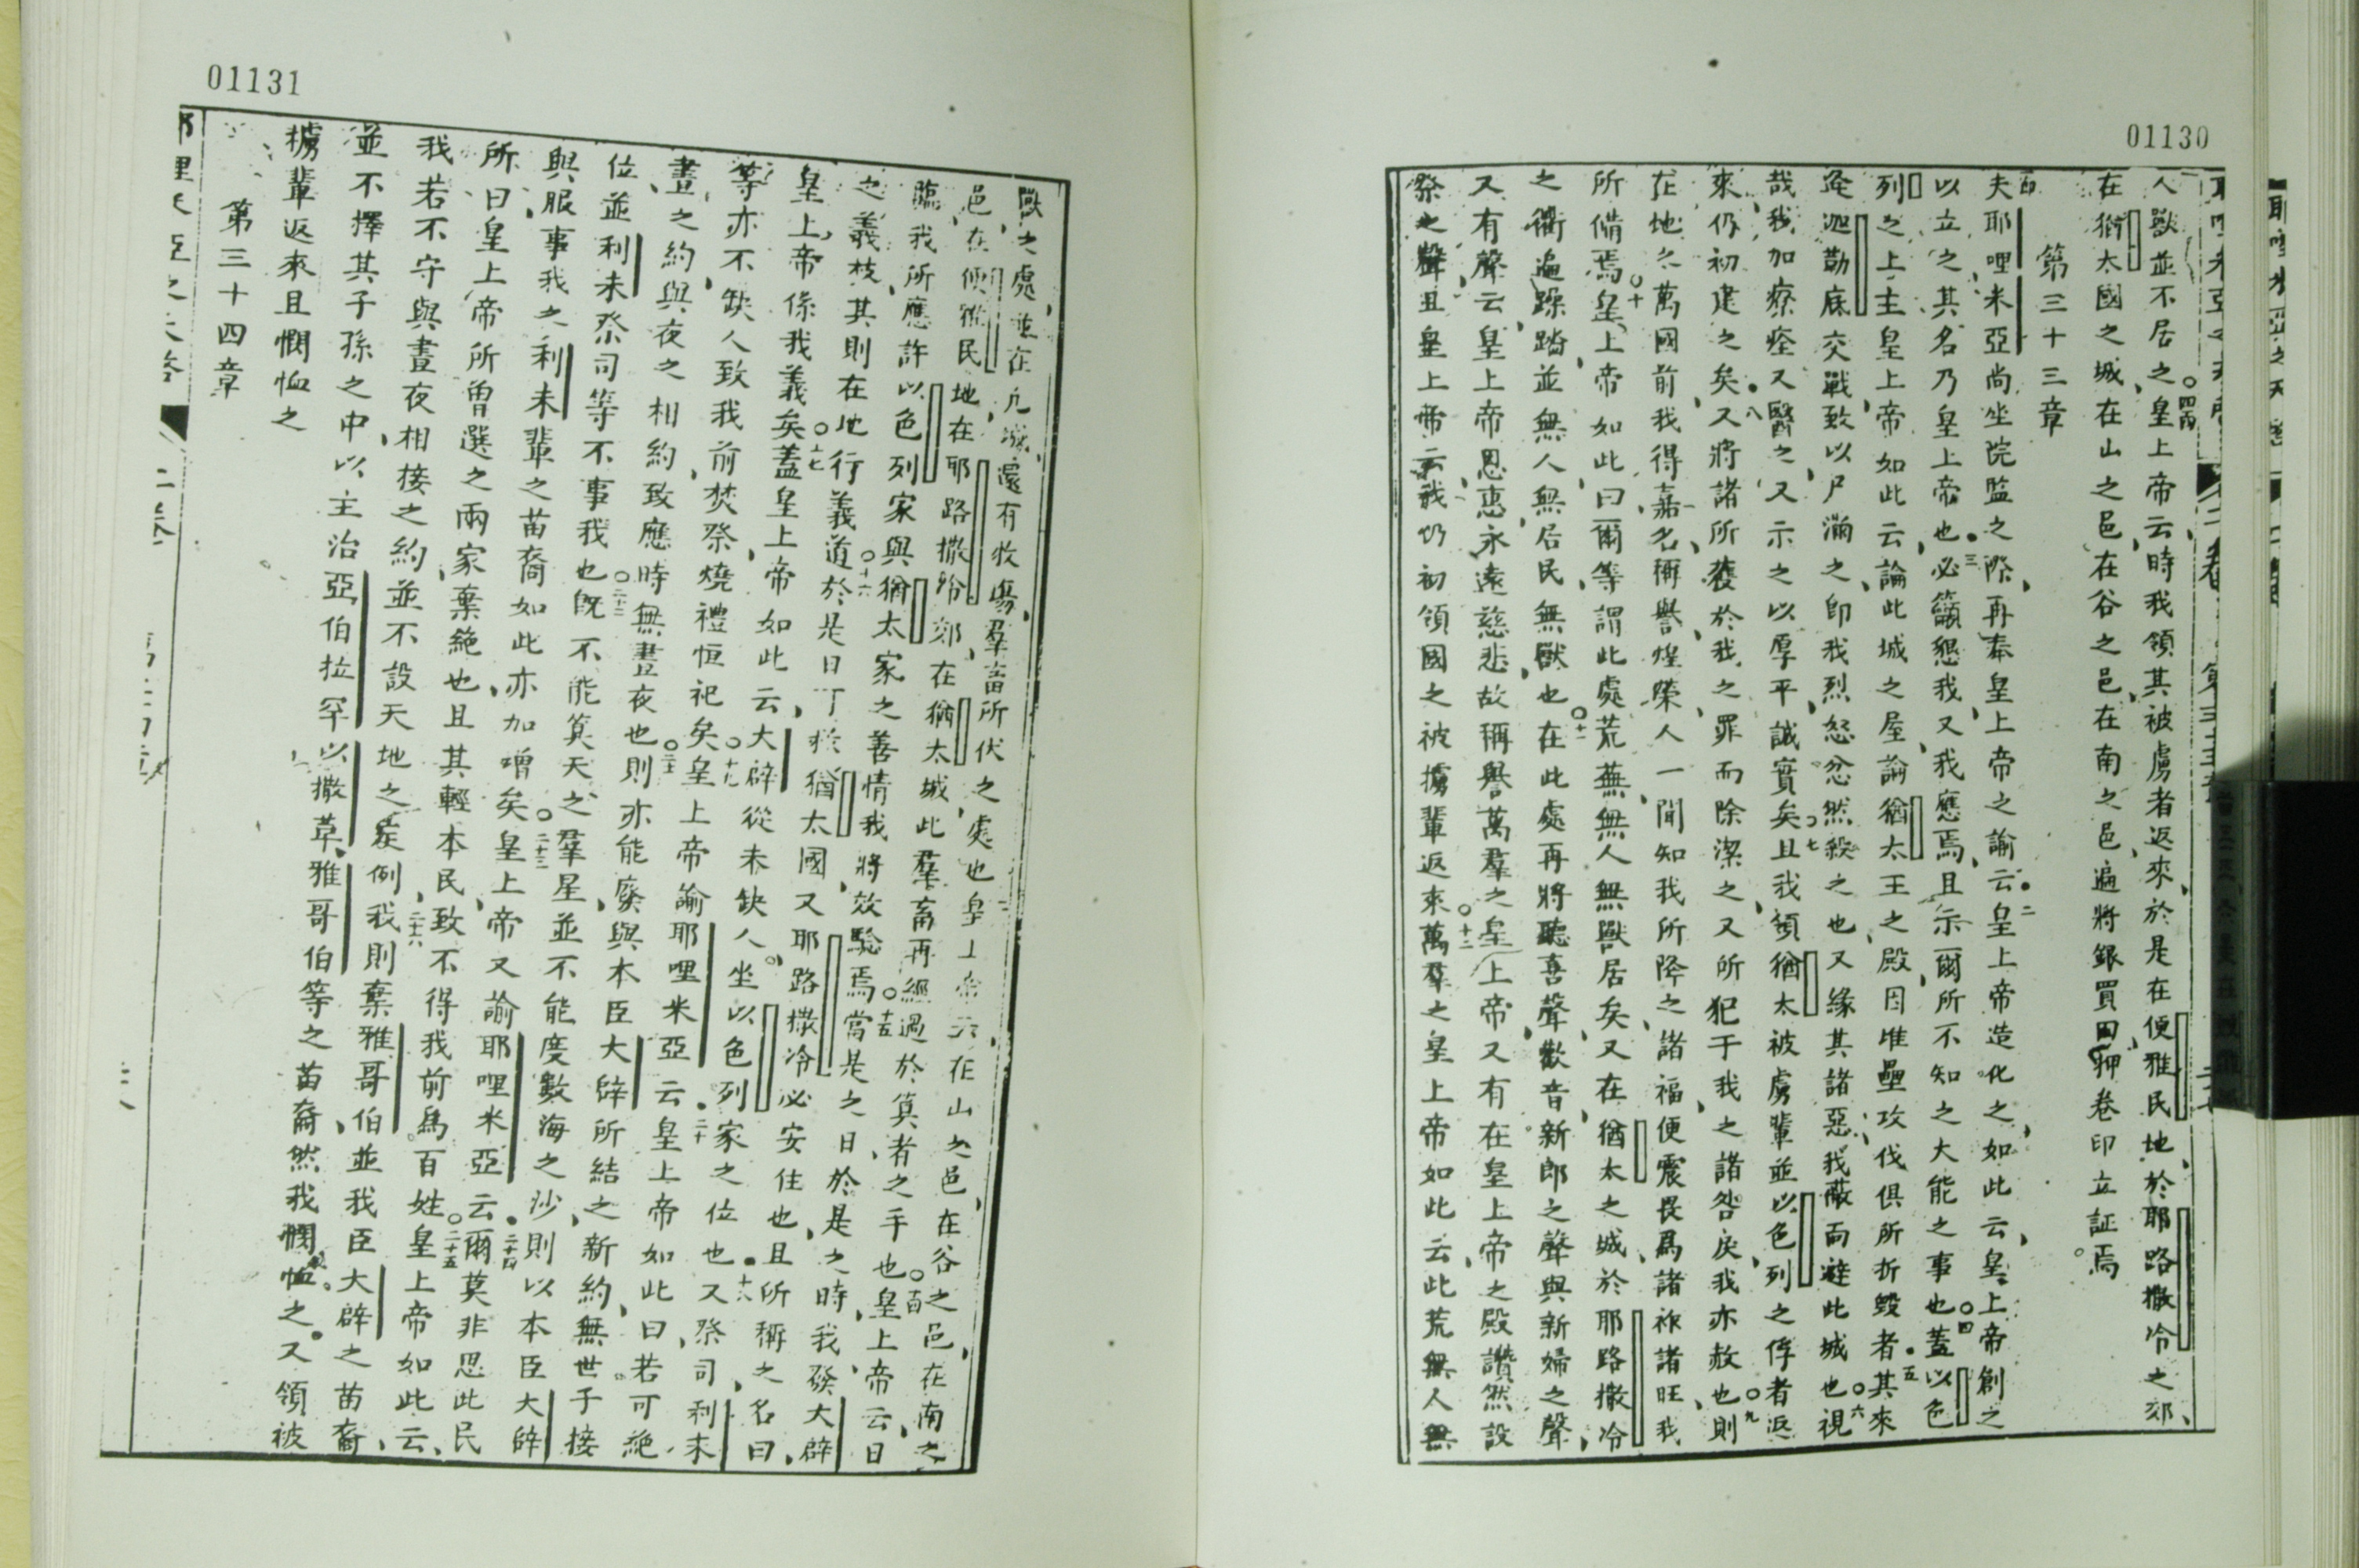 01130
人獸並不居之皇上帝云時我領其被虜者返來於是在便雅民地於耶路撒冷之郊
在猶太國之城在山之邑在谷之邑在南之邑遍將銀買田押卷印立証焉
第三十三章
夫耶哩米亞尚坐院監之際再奉皇上帝之諭云皇上帝造化之如此云皇上帝創之
以立之其名乃皇上帝也必籲懇我又我應焉且示爾所不知之大能之事也蓋以色
列之上主皇上帝如此云論此城之屋論猶太王之殿因堆壘攻伐俱所折毀者其來
迦勒底交戰致以尸滿之卽我烈怒忿然殺之也又緣其諸惡我蔽面避此城也視
哉我加療痊又醫之又示之以厚平誠實矣且我領猶太被虜輩並以色列之俘者返
來仍初建之矣又將諸所獲於我之罪而除潔之又所犯于我之諸咎戾我亦赦也則
在地之萬國前我得嘉名稱譽煌榮人一聞知我所降之諸福便震畏爲諸祚諸旺我
所備焉皇上帝如此曰爾等謂此處荒蕪無人無獸居矣又在猶太之城於耶路撒冷
之衢遍躁踏並無人無居民無獸也在此處再將聽喜聲歡音新郎之聲與新婦之聲
又有聲云皇上帝恩惠永遠慈悲故稱譽萬羣之皇上帝又有在皇上帝之殿讚然設
祭之聲且皇上帝云我仍初領國之被擄輩返來萬羣之皇上帝如此云此荒無人無
01131
獸之處並在凡城還有牧場羣畜所伏之處也皇上帝云在山之邑在谷之邑在南之
邑在便雅民地在耶路撒冷郊在猶太城此羣畜再經過於算者之手也皇上帝云日
臨我所應許以色列家與猶太家之善情我將效驗焉當是之日於是之時我發大辟
之義枝其則在地行義道於是日猶太國又耶路撒冷必安住也且所稱之名曰
皇上帝係我義矣蓋皇上帝如此云大辟從未缺人坐以色列家之位也又祭司利未
等亦不缺人致我前焚祭燒禮恒祀矣皇上帝諭耶哩米亞云皇上帝如此曰若可絕
晝之約與夜之相約致應時無晝夜也則亦能廢與本臣大辟所結之新約無世子接
位並利未祭司等不事我也旣不能算天之羣星並不能度數海之沙則以本臣大辟
與服事我之利未輩之苗裔如此亦加增矣皇上帝又諭耶哩米亞云爾莫非思此民
所曰皇上帝所曾選之兩家棄絕也且其輕本民致不得我前爲百姓皇上帝如此云
我若不守與晝夜相接之約並不設天地之定例我則棄雅哥伯並我臣大辟之苗裔
並不擇其子孫之中以主治亞伯拉罕以撒革雅哥伯等之苗裔然我憫恤之又領被
擄輩返來且憫恤之
第三十四章